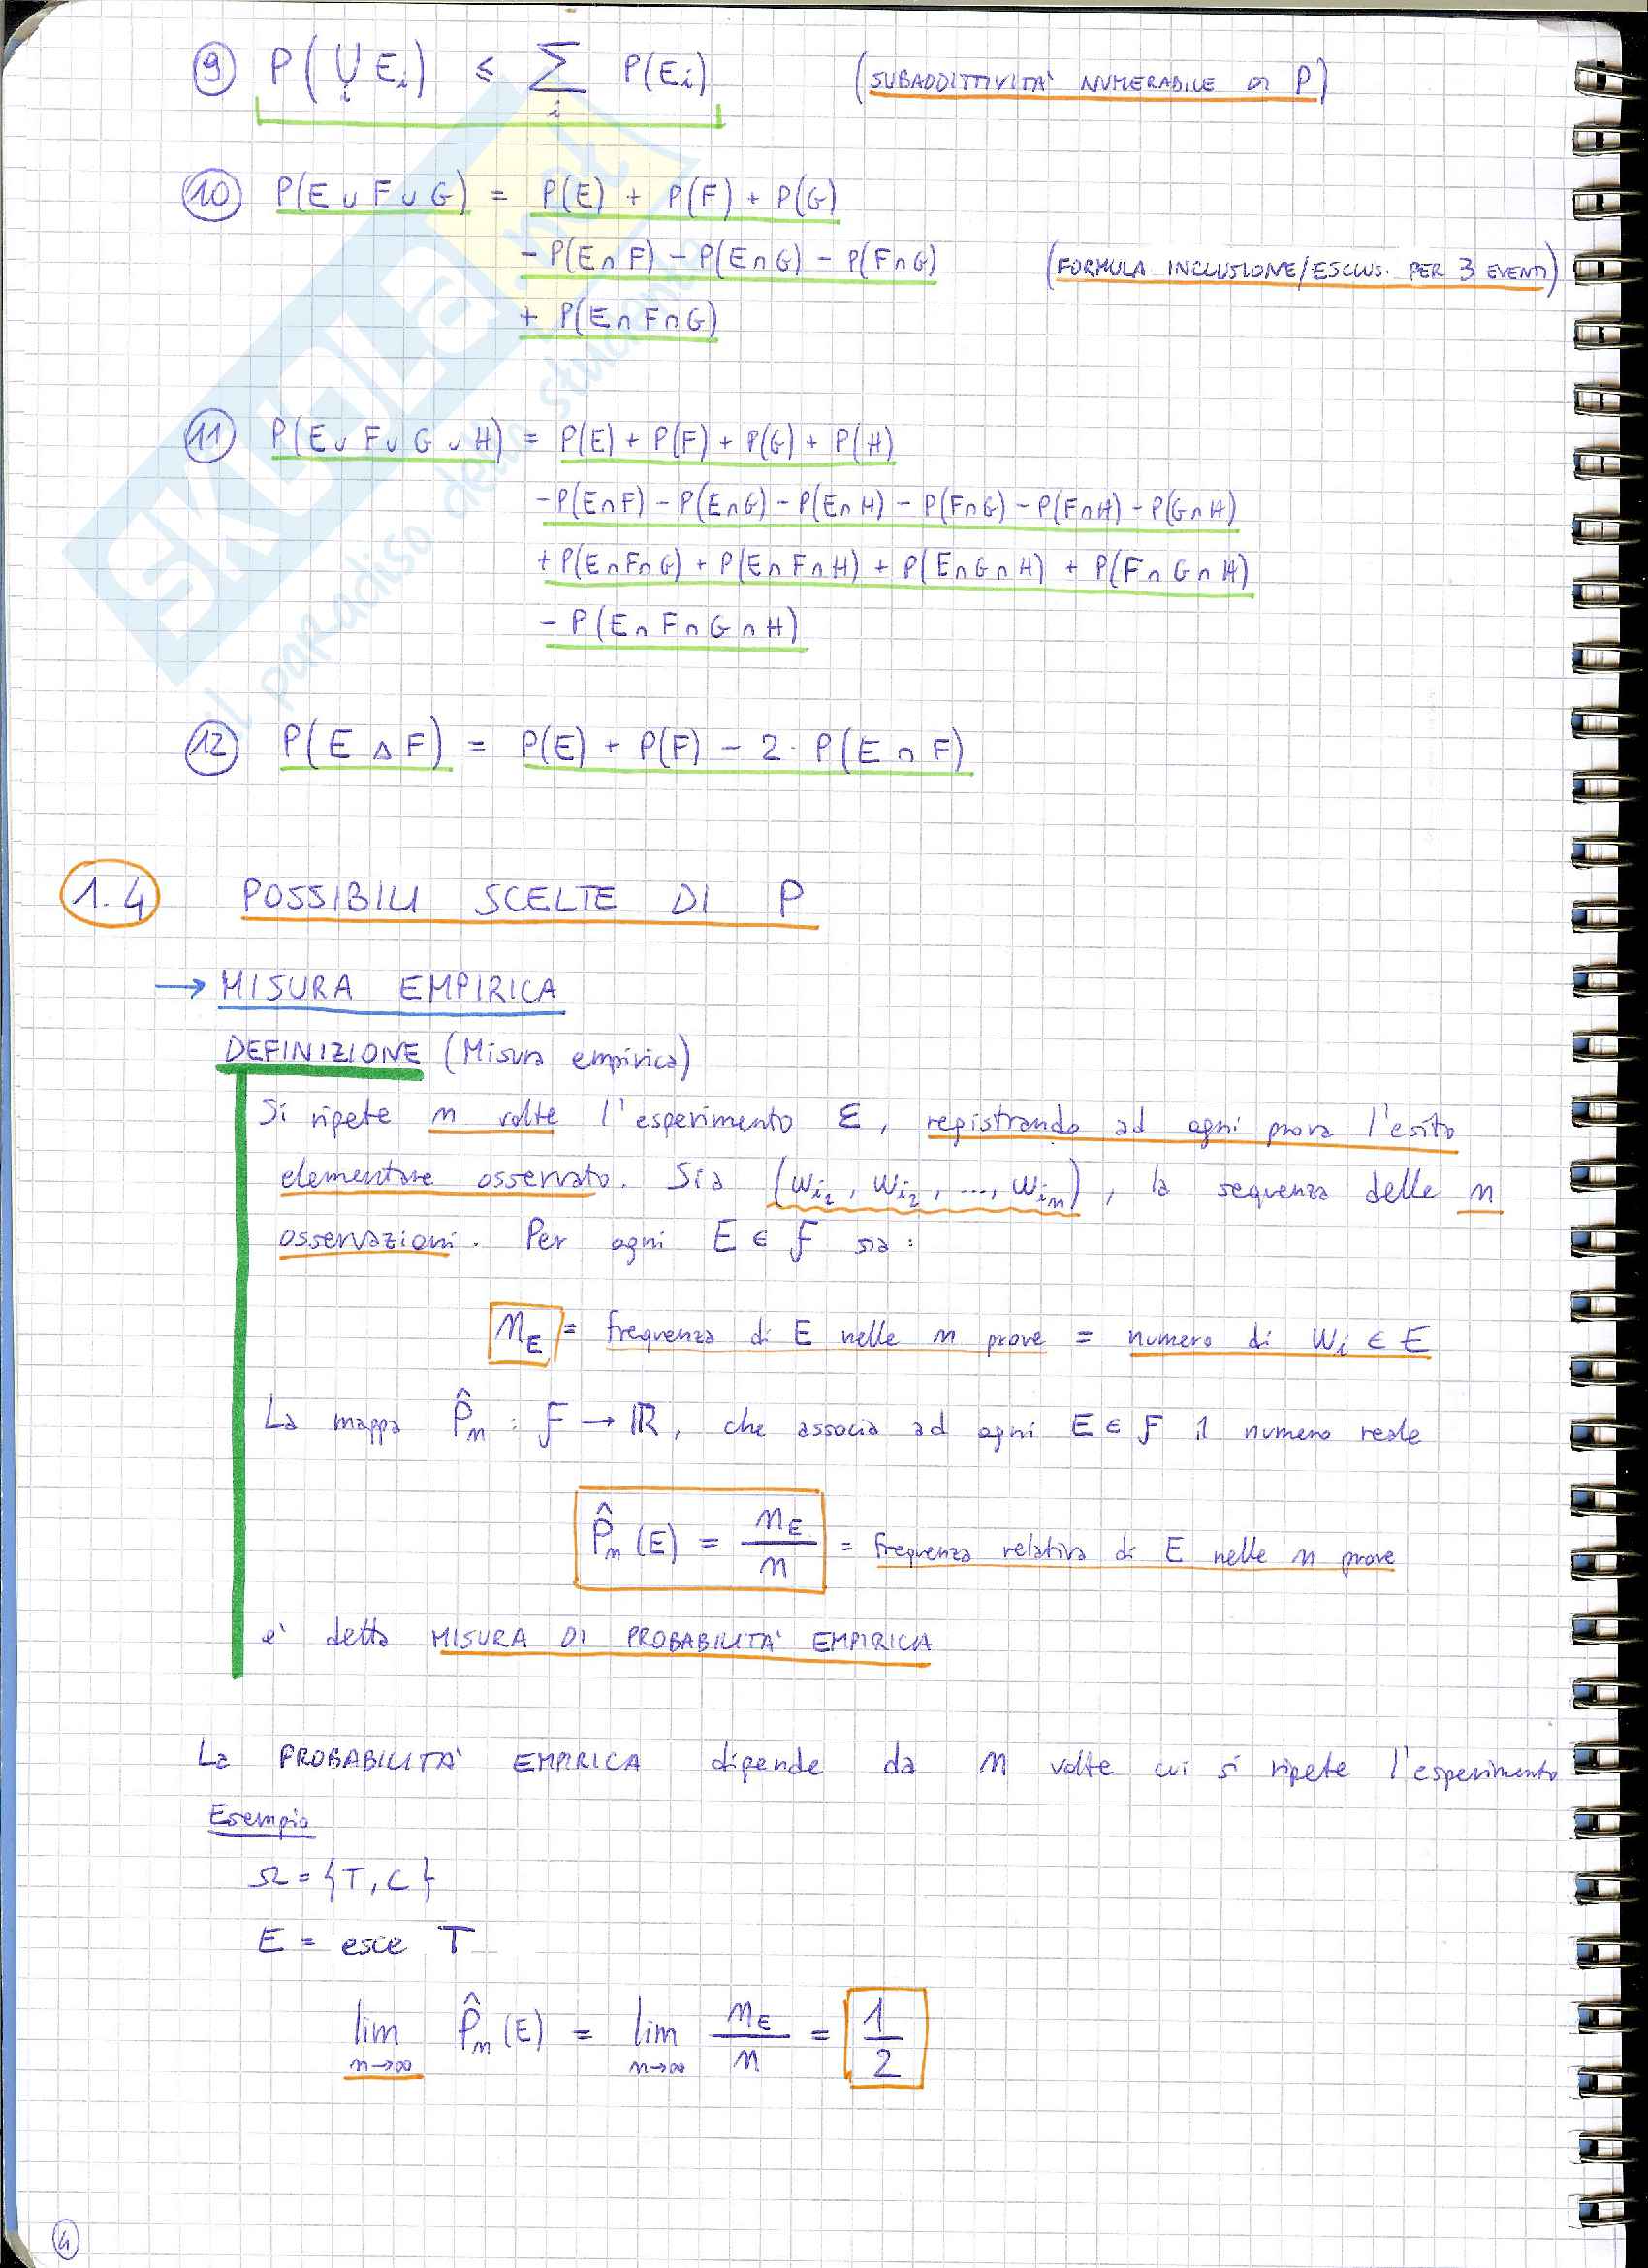 ⑨ P(∪_i E_i) ≤ Σ_i P(E_i) (SUBADDITTIVITA' NUMERABILE DI P)
⑩ P(E ∪ F ∪ G) = P(E) + P(F) + P(G)
- P(E ∩ F) - P(E ∩ G) - P(F ∩ G) (FORMULA INCLUSIONE/ESCLUS. PER 3 EVENTI)
+ P(E ∩ F ∩ G)
⑪ P(E ∪ F ∪ G ∪ H) = P(E) + P(F) + P(G) + P(H)
- P(E∩F) - P(E∩G) - P(E∩H) - P(F∩G) - P(F∩H) - P(G∩H)
+ P(E∩F∩G) + P(E∩F∩H) + P(E∩G∩H) + P(F∩G∩H)
- P(E∩F∩G∩H)
⑫ P(E △ F) = P(E) + P(F) - 2 · P(E ∩ F)
1.4 POSSIBILI SCELTE DI P
→ MISURA EMPIRICA
DEFINIZIONE (Misura empirica)
Si ripete n volte l'esperimento ε, registrando ad ogni prova l'esito
elementare osservato. Sia (ω_i2, ω_i2, ..., ω_in), la sequenza delle n
osservazioni. Per ogni E ∈ F sia:
n_E = frequenza di E nelle n prove = numero di ω_i ∈ E
La mappa P̂_n : F → ℝ, che associa ad ogni E ∈ F il numero reale
P̂_n(E) = n_E / n = frequenza relativa di E nelle n prove
e' detta MISURA DI PROBABILITA' EMPIRICA
La PROBABILITA' EMPIRICA dipende da n volte cui si ripete l'esperimento
Esempio
Ω = {T, C}
E = esce T
lim n→∞ P̂_n(E) = lim n→∞ n_E / n = 1/2
4
SKUOLA.net
il paradiso dello studente